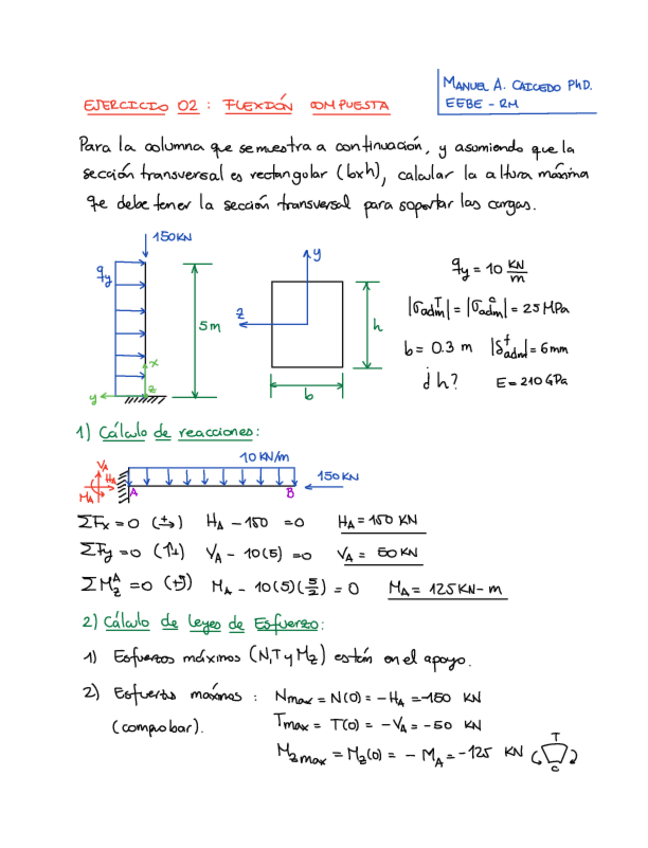 MANUEL A. CAICEDO PhD.
EEBE - RM
EJERCICIO 02 : FLEXIÓN COMPUESTA
Para la columna que se muestra a continuación, y asumiendo que la
sección transversal es rectangular (bxh), calcular la altura máxima
qe debe tener la sección transversal para soportar las cargas.
150KN
qy
5m
x
y
z
y
z
h
b
qy = 10 KN/m
|σadm^T| = |σadm^c| = 25 MPa
b = 0.3 m |δadm^t| = 6mm
¿h? E = 210 GPa
1) Cálculo de reacciones:
10 KN/m
150 KN
VA
HA
MA
A
B
ΣFx = 0 (+→) HA - 150 = 0 HA = 150 KN
ΣFy = 0 (↑+) VA - 10(5) = 0 VA = 50 KN
ΣMz^A = 0 (+↺) MA - 10(5)(5/2) = 0 MA = 125 KN-m
2) Cálculo de leyes de Esfuerzo:
1) Esfuerzos máximos (N,T y Mz) están en el apoyo.
2) Esfuerzos máximos : Nmax = N(0) = - HA = -150 KN
(comprobar). Tmax = T(0) = - VA = - 50 KN
Mzmax = Mz(0) = - MA = -125 KN
T
C